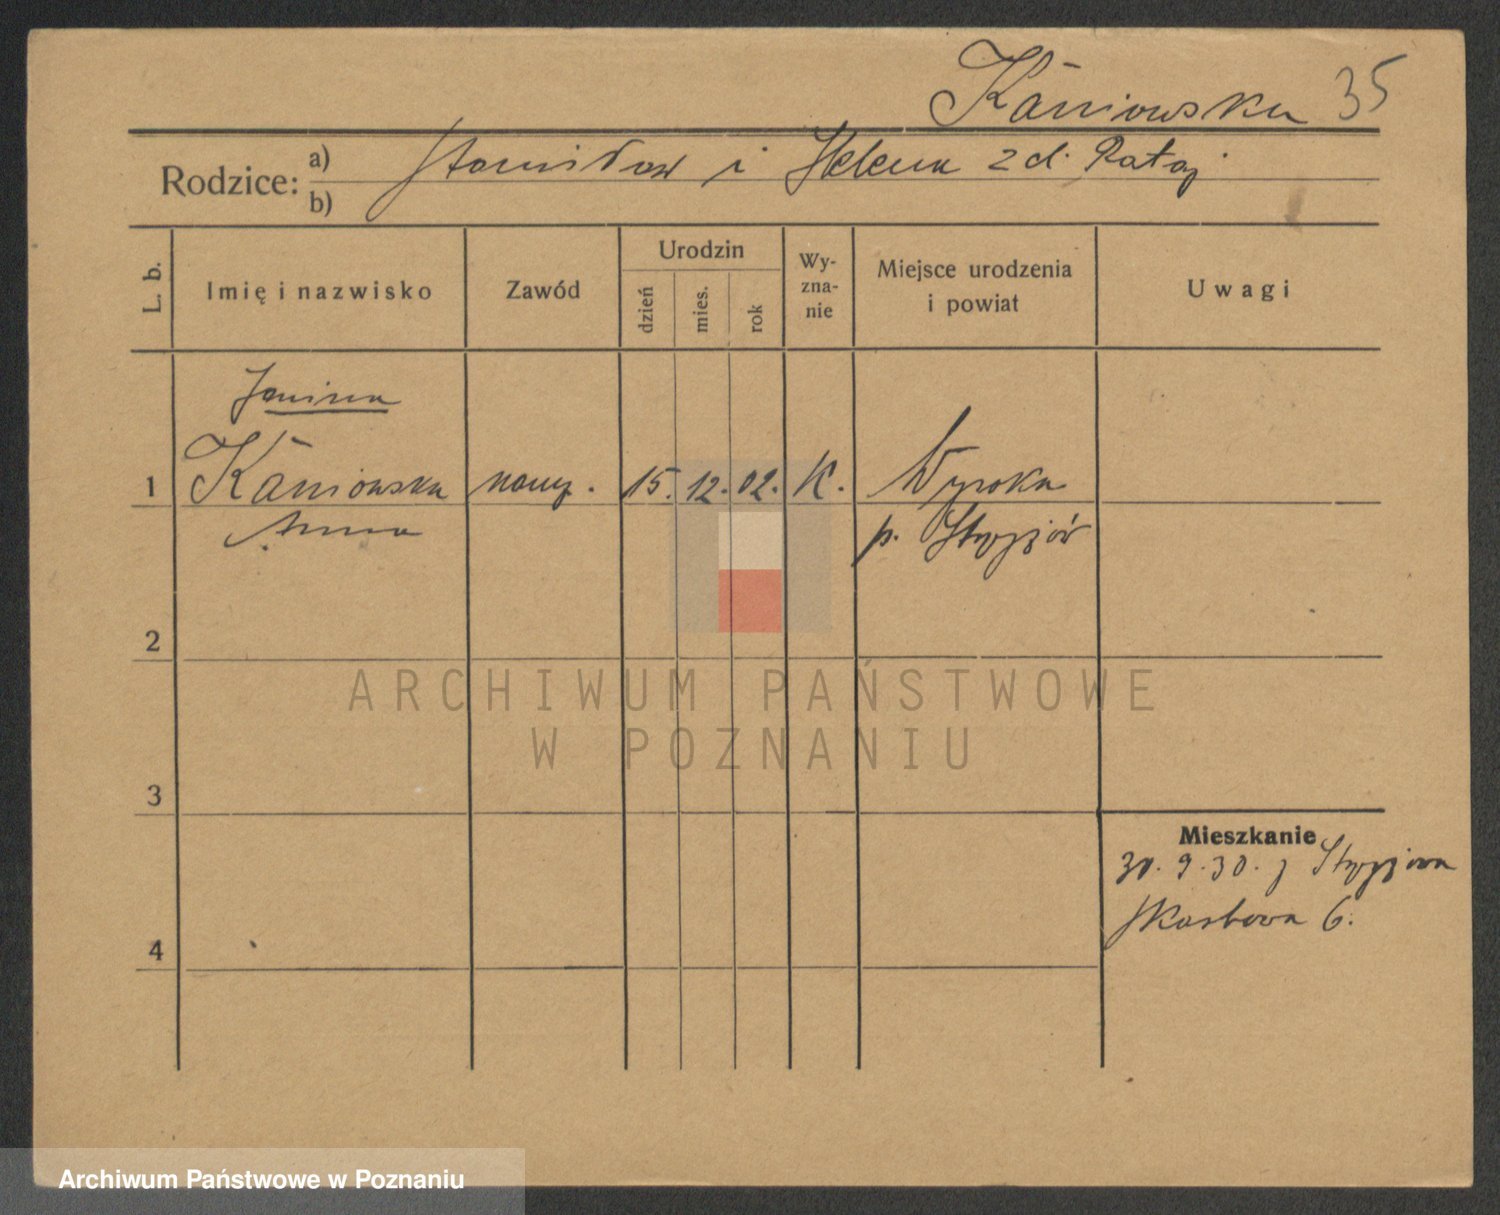 Kaniowska 35
Rodzice: a) Stanisław i Helena z d. Rataj
b)
L. b. Imię i nazwisko Zawód Urodzin dzień mies. rok Wyznanie Miejsce urodzenia i powiat Uwagi
Janina
1 Kaniowska naucz. 15. 12. 02. K. Wysoka
Anna p. Strzyżów
2
3
4
Mieszkanie
30.9.30. z Strzyżowa
Skarbowa 6.
ARCHIWUM PAŃSTWOWE
W POZNANIU
Archiwum Państwowe w Poznaniu